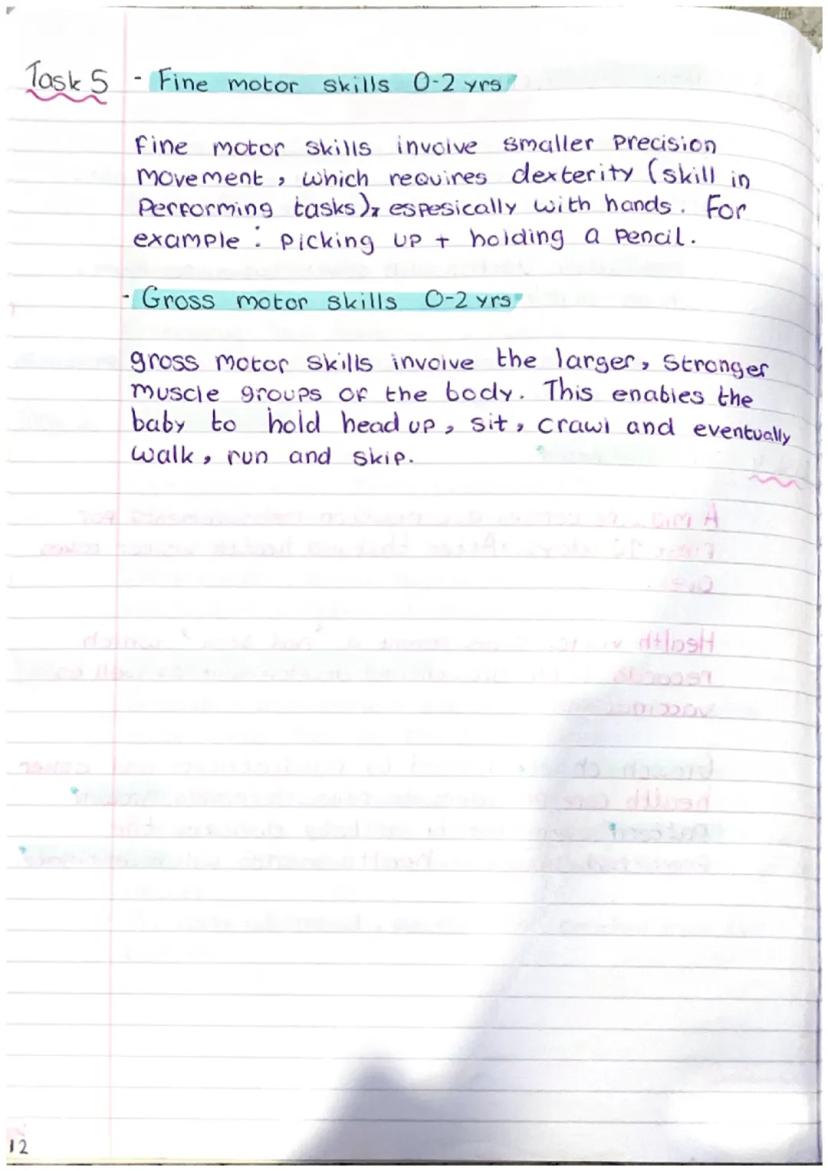 Task 5 - Fine motor skills 0-2 yrs
Fine motor skills involve smaller precision
movement, which requires dexterity (skill in
performing tasks), espesically with hands. For
example: picking up + holding a pencil.
- Gross motor skills 0-2 yrs
gross motor skills involve the larger, stronger
muscle groups of the body. This enables the
baby to hold head up, sit, crawl and eventually
walk, run and skip.
12